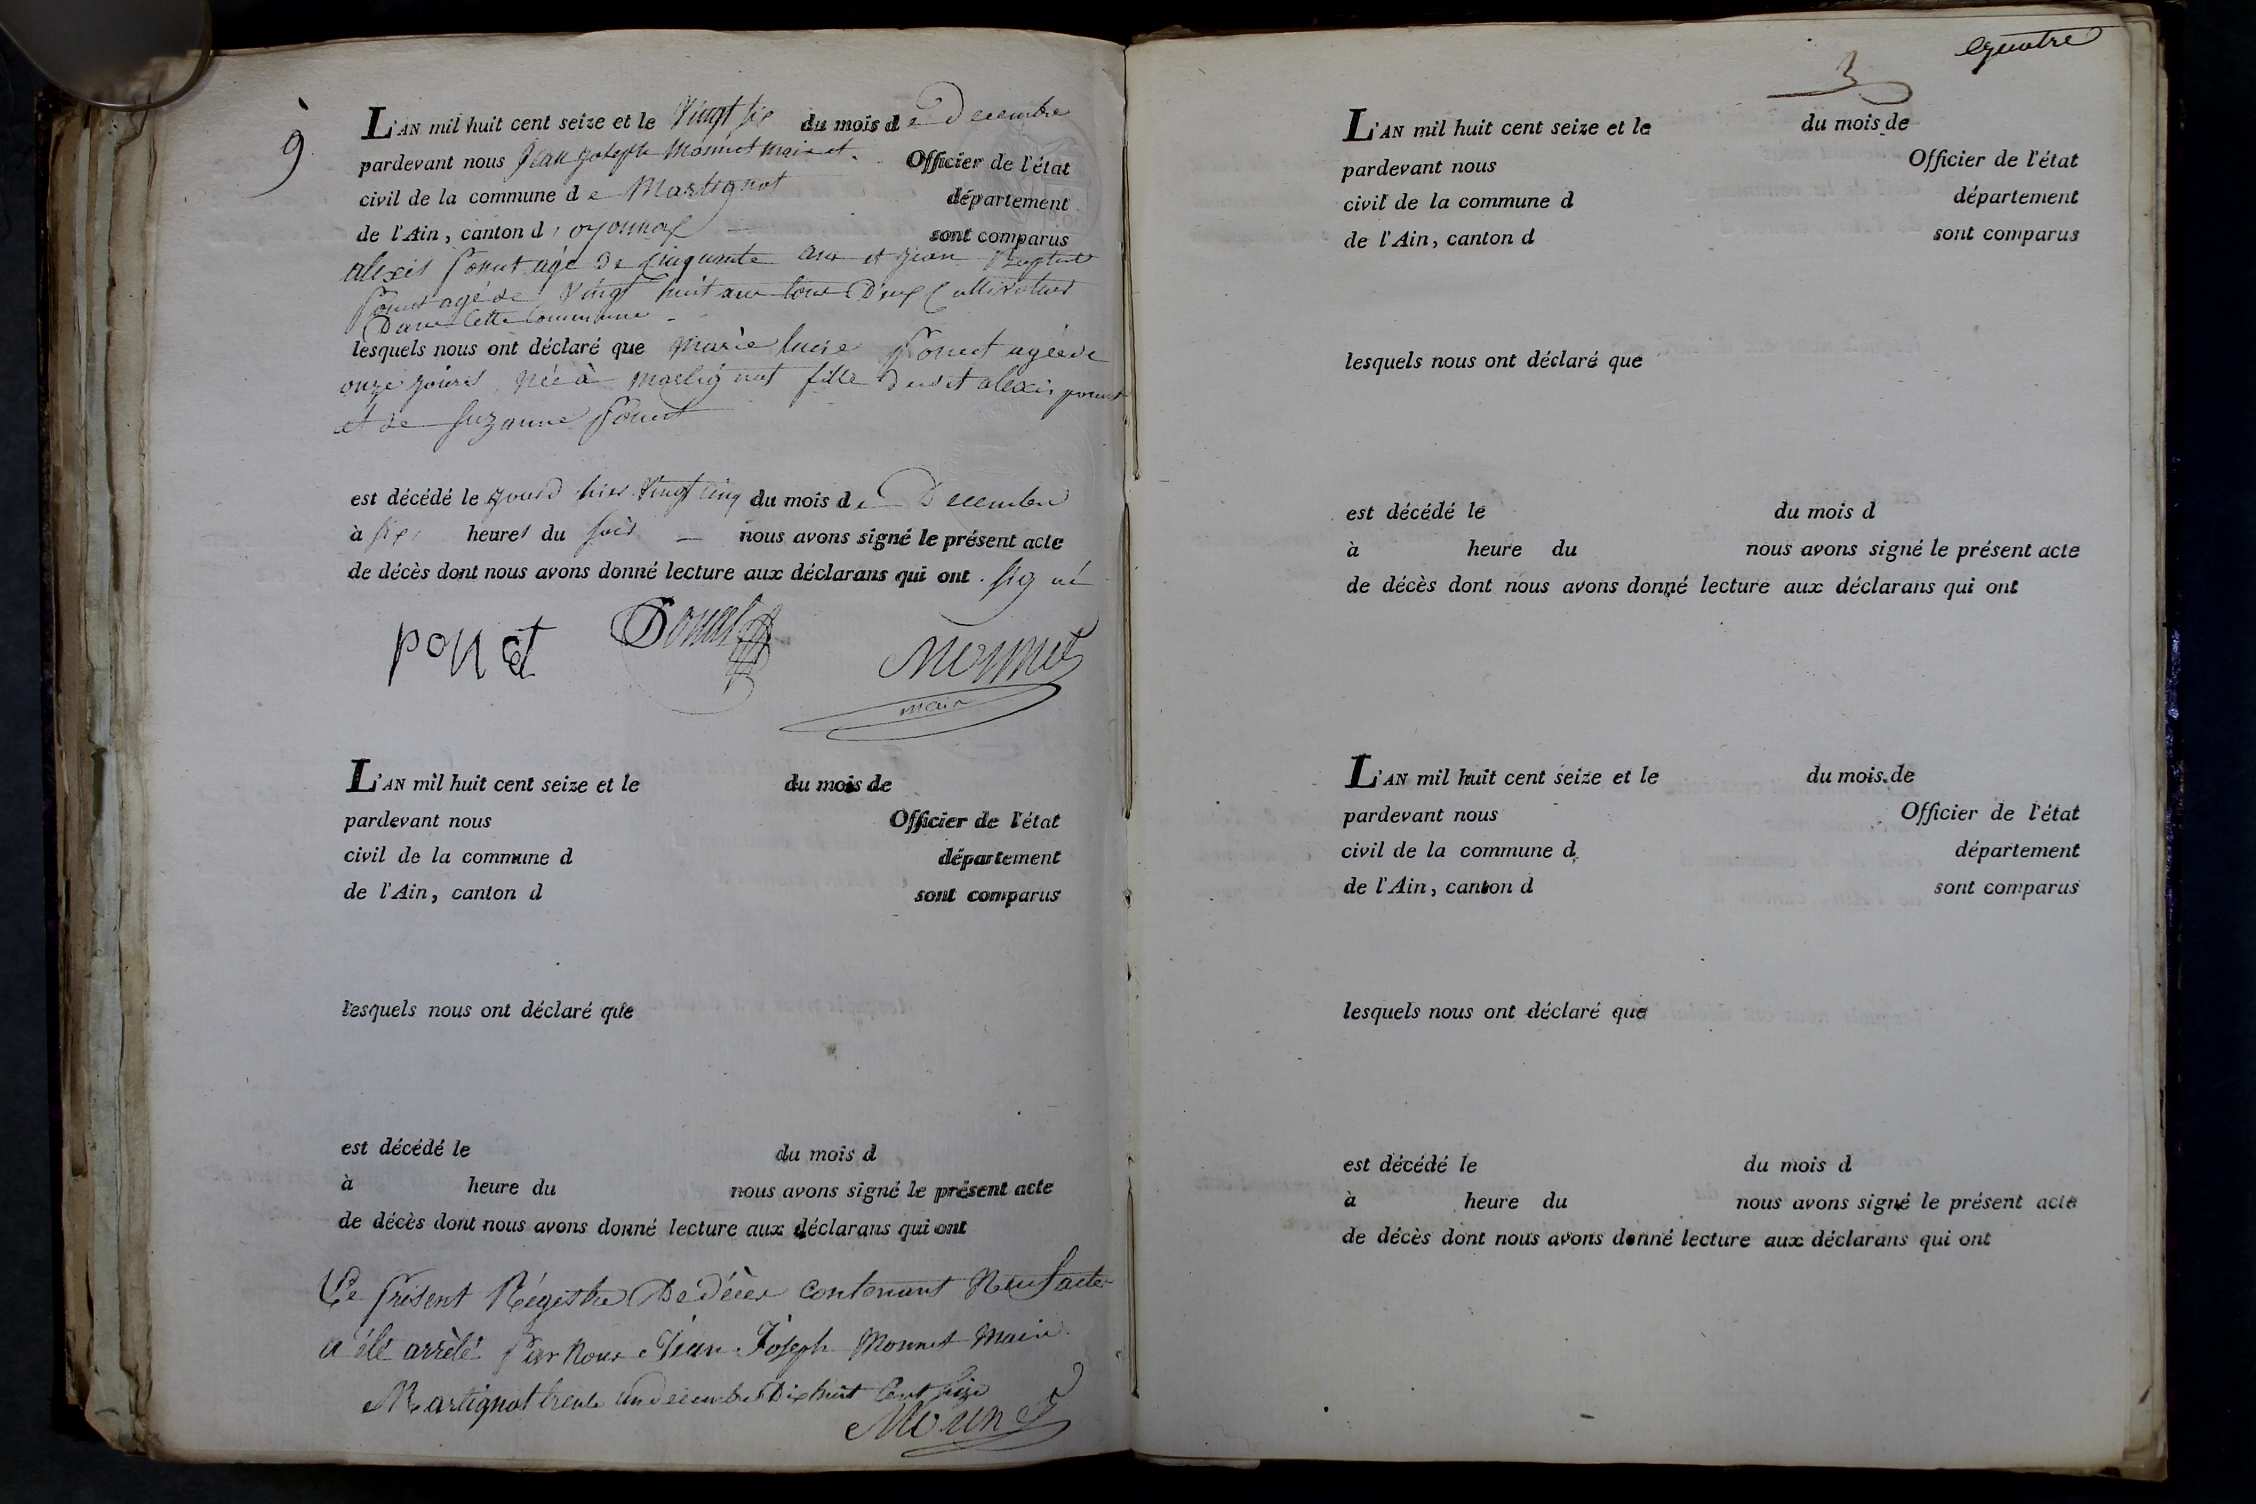 9
L'AN mil huit cent seize et le Vingt six du mois de Decembre
pardevant nous Jean joseph Monnet maire et Officier de l'état
civil de la commune de Martignat département
de l'Ain, canton d'oyonnax sont comparus
alexis Ponet agé de Cinquante ans et jean Baptiste
Ponet agé de Vingt huit ans tous Deux Cultivateurs
Dans Cette Commune
lesquels nous ont déclaré que marie lucie Ponet agée de
onze jours née à martignat fille dudit alexis ponet
et de Suzanne Ponet
est décédé le jourd hier Vingt cinq du mois de Decembre
à six heures du soir nous avons signé le présent acte
de décès dont nous avons donné lecture aux déclarans qui ont signé
ponet Ponet Monnet
maire
L'AN mil huit cent seize et le du mois de
pardevant nous Officier de l'état
civil de la commune d département
de l'Ain, canton d sont comparus
lesquels nous ont déclaré que
est décédé le du mois d
à heure du nous avons signé le présent acte
de décès dont nous avons donné lecture aux déclarans qui ont
Le present Régistre De déces contenant Neuf actes
a élé arrèté Par Nous Jean Joseph Monnet Maire
Martignat trente un decembre Dix huit Cent seize
Monnet
quatre
3
L'AN mil huit cent seize et le du mois de
pardevant nous Officier de l'état
civil de la commune d département
de l'Ain, canton d sont comparus
lesquels nous ont déclaré que
est décédé le du mois d
à heure du nous avons signé le présent acte
de décès dont nous avons donné lecture aux déclarans qui ont
L'AN mil huit cent seize et le du mois de
pardevant nous Officier de l'état
civil de la commune d département
de l'Ain, canton d sont comparus
lesquels nous ont déclaré que
est décédé le du mois d
à heure du nous avons signé le présent acte
de décès dont nous avons donné lecture aux déclarans qui ont